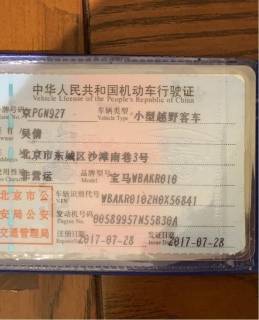 中华人民共和国机动车行驶证
Vehicle License of the People's Republic of China
牌号码 京PGN927 车辆类型 小型越野客车
Vehicle Type
北京市东城区沙滩南巷3号
非营运 品牌型号 宝马WBAKR010
车辆识别代号 WBAKR010ZH0X56841
VIN
发动机号码 00589957N55B30A
Engine No.
注册日期 2017-07-28 发证日期 2017-07-28
Issue Date
北京市公
安局公安
交通管理局